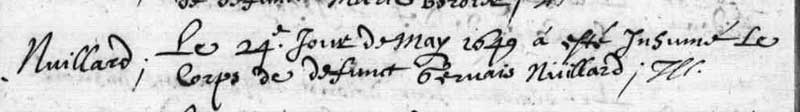 de defunct Marie
Nuillard; Le 24e. Jour de May 1649 à esté Inhumé Le
Corps de defunct Gervais Nuillard;